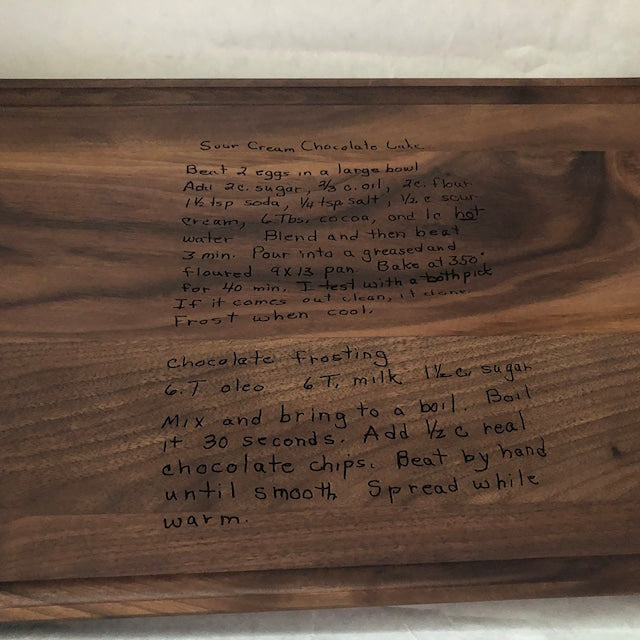 Sour Cream Chocolate Cake
Beat 2 eggs in a large bowl
Add 2c. sugar, 2/3 c. oil, 2c. flour
1½ tsp soda, ¼ tsp salt, ½ c sour
cream, 6 Tbs. cocoa, and 1c hot
water Blend and then beat
3 min. Pour into a greased and
floured 9x13 pan Bake at 350°
for 40 min. I test with a toothpick
If it comes out clean, it done
Frost when cool.
Chocolate Frosting
6.T oleo 6 T. milk 1½ c. sugar
Mix and bring to a boil. Boil
it 30 seconds. Add ½ c real
chocolate chips. Beat by hand
until smooth Spread while
warm.